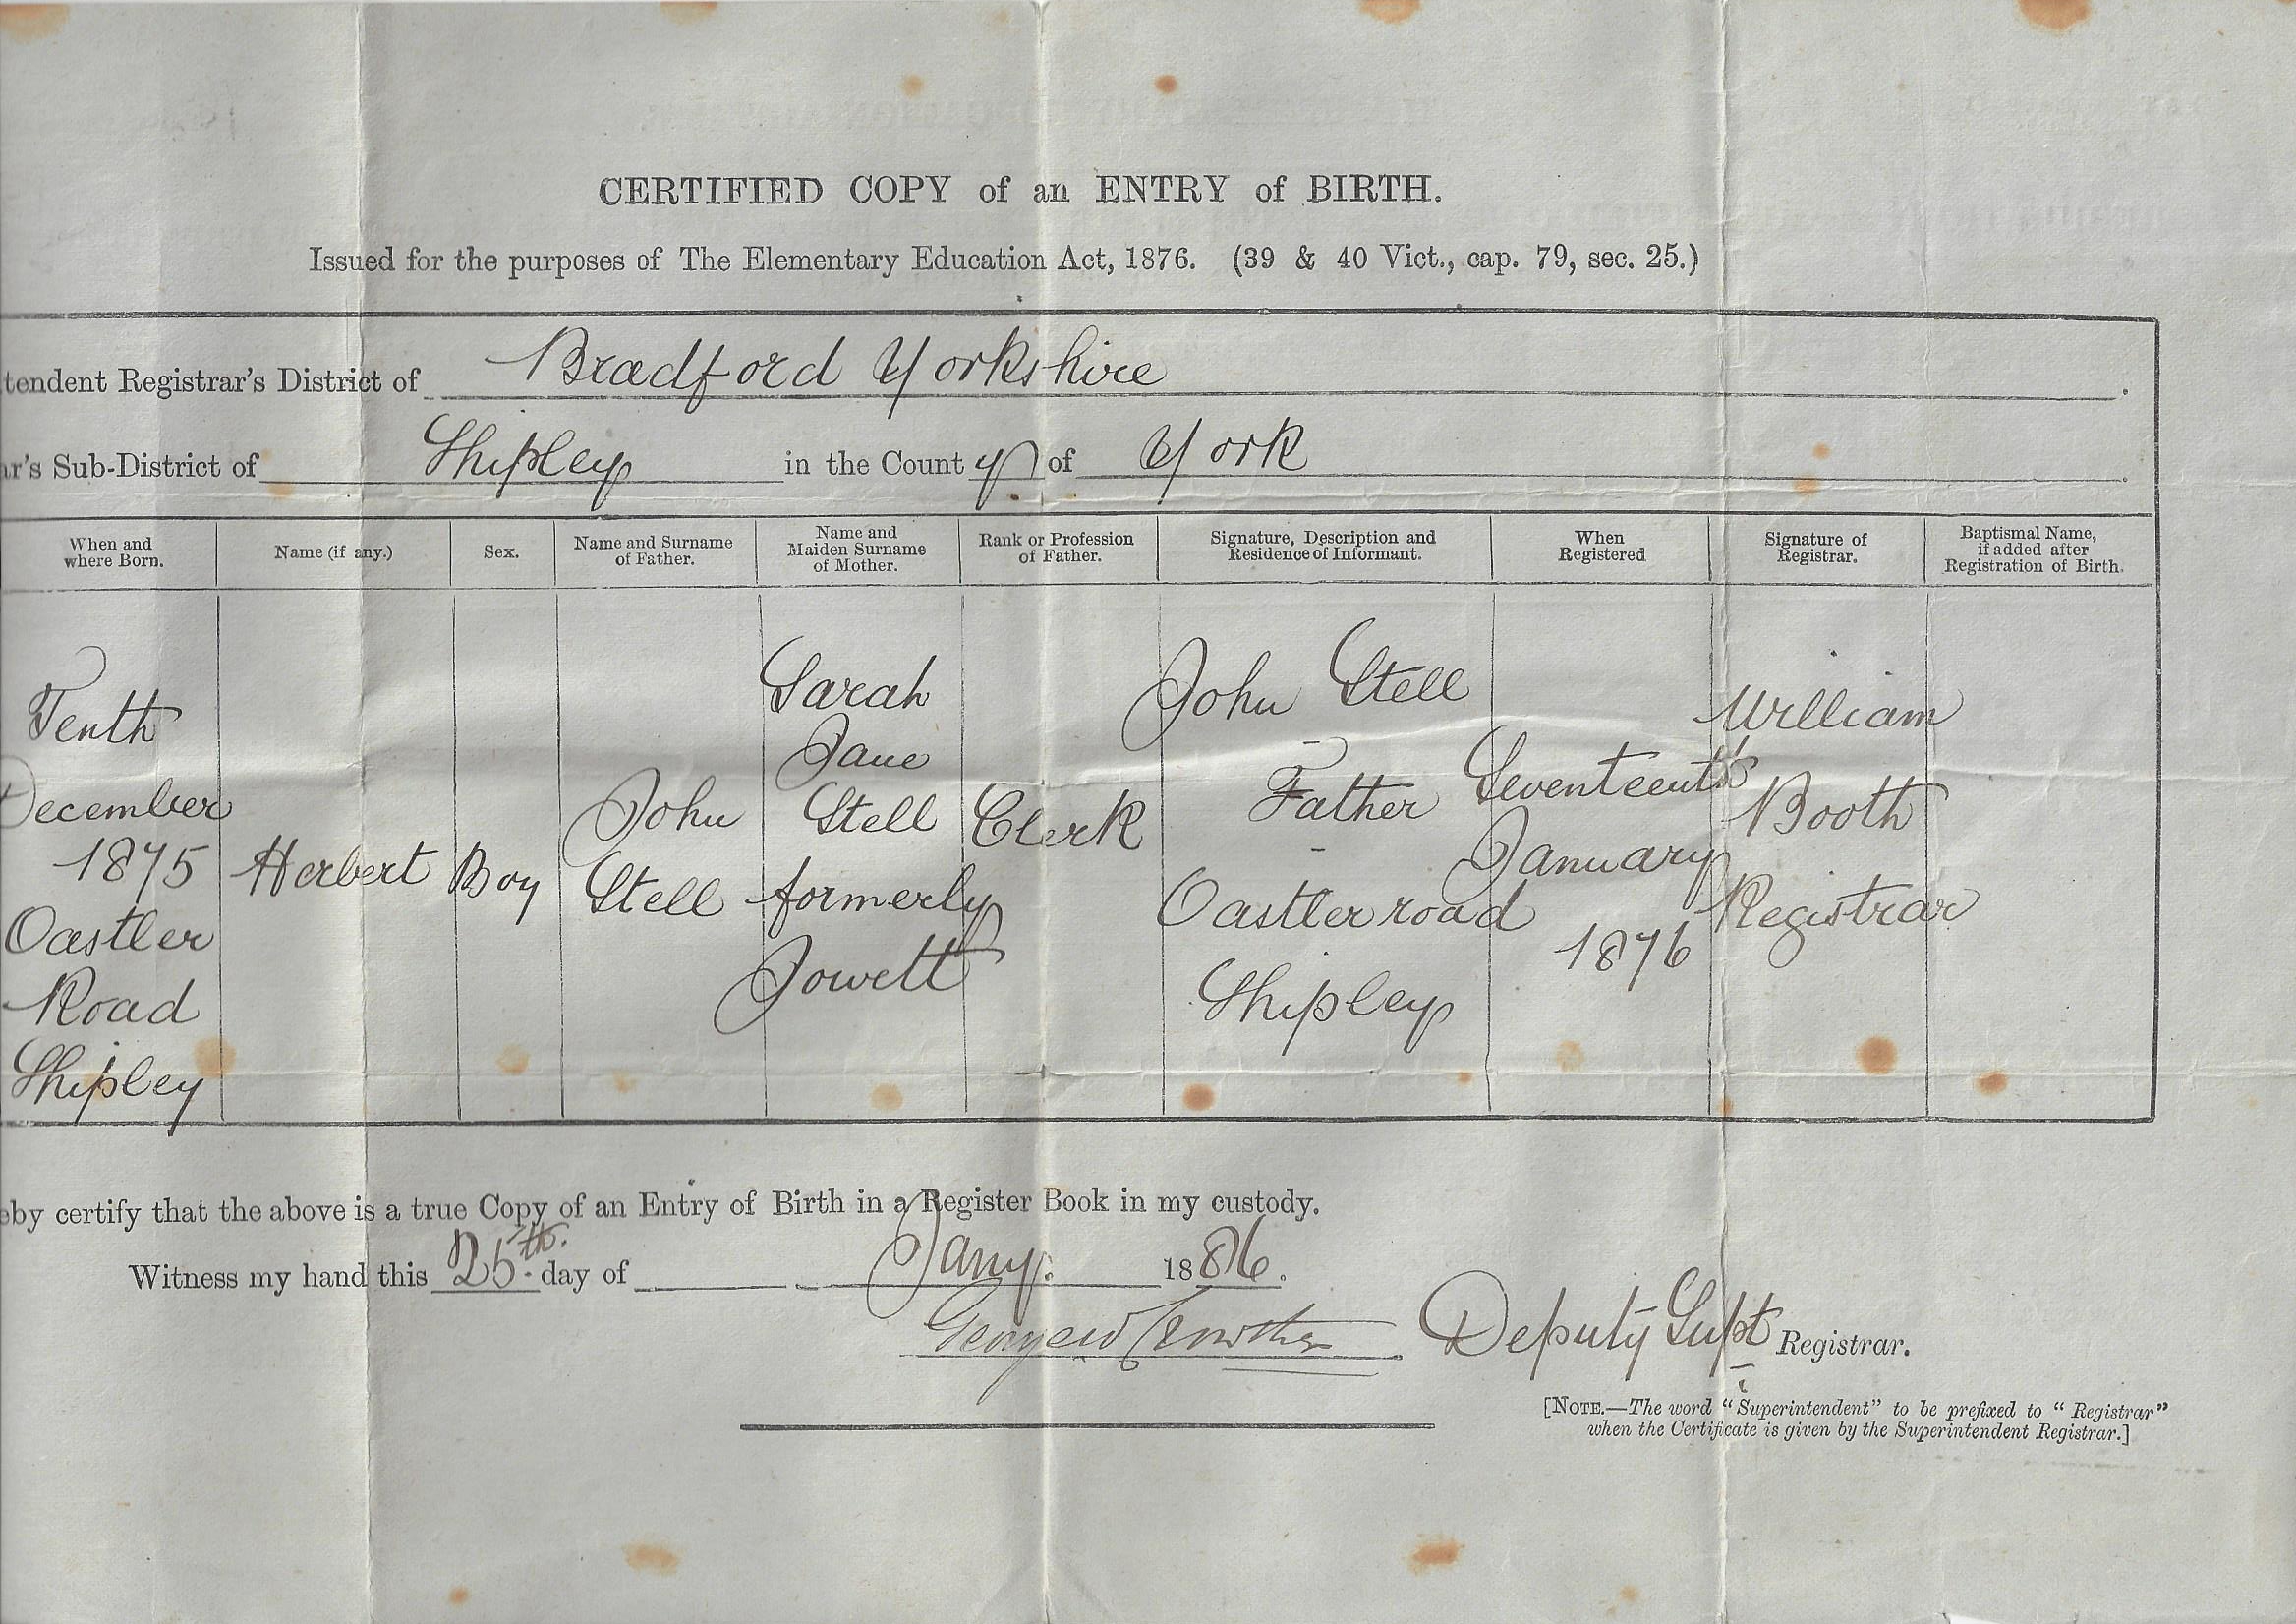 CERTIFIED COPY of an ENTRY of BIRTH.
Issued for the purposes of The Elementary Education Act, 1876. (39 & 40 Vict., cap. 79, sec. 25.)
tendent Registrar's District of Bradford Yorkshire.
r's Sub-District of Shipley in the County of York.
When and
where Born.
Name (if any.)
Sex.
Name and Surname
of Father.
Name and
Maiden Surname
of Mother.
Rank or Profession
of Father.
Signature, Description and
Residence of Informant.
When
Registered
Signature of
Registrar.
Baptismal Name,
if added after
Registration of Birth.
Tenth
December
1875
Oastler
Road
Shipley
Herbert
Boy
John
Stell
Sarah
Jane
Stell
formerly
Jowett
Clerk
John Stell
Father
Oastler road
Shipley
Seventeenth
January
1876
William
Booth
Registrar
eby certify that the above is a true Copy of an Entry of Birth in a Register Book in my custody.
Witness my hand this 25th. day of Jany. 1886.
George W Crowther. Deputy Supt Registrar.
[NOTE.—The word “Superintendent” to be prefixed to “Registrar”
when the Certificate is given by the Superintendent Registrar.]